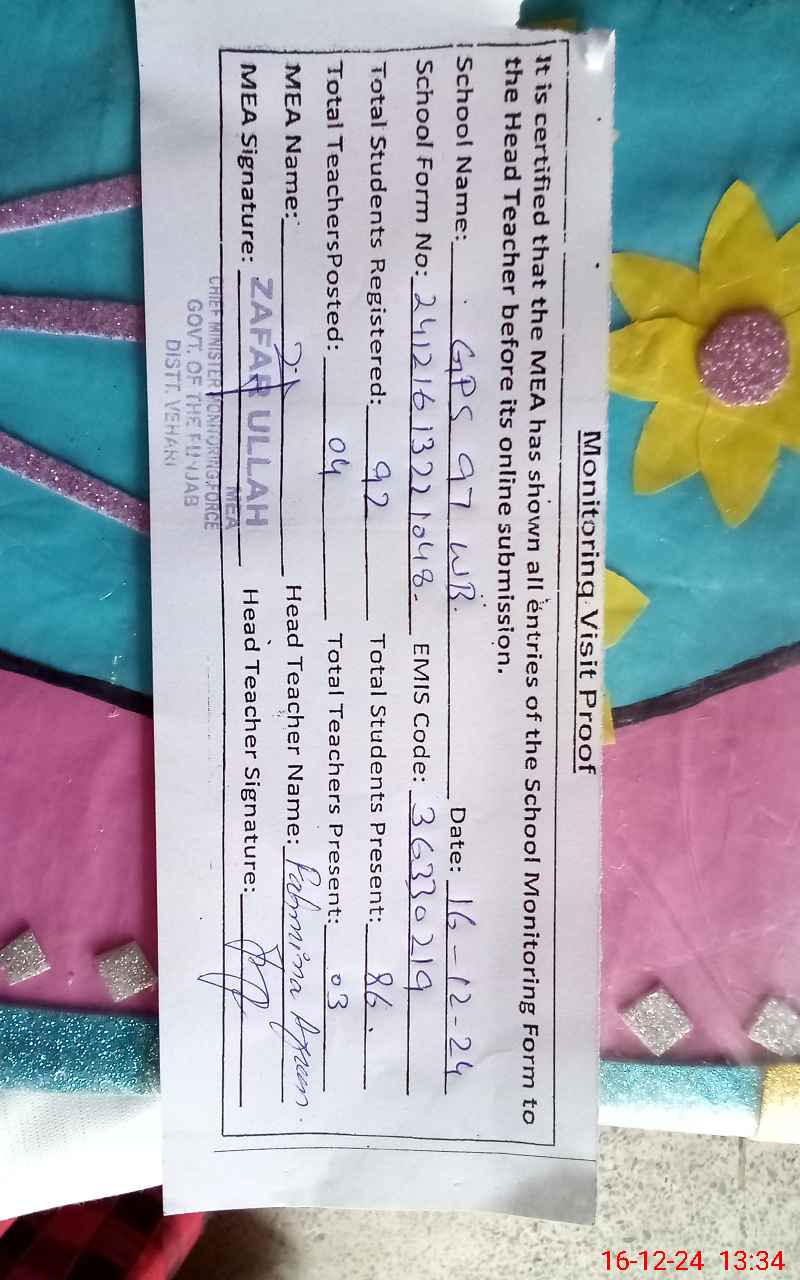 Monitoring Visit Proof
It is certified that the MEA has shown all entries of the School Monitoring Form to
the Head Teacher before its online submission.
School Name: GPS 97 WB. Date: 16-12-24
School Form No: 24121613221048- EMIS Code: 36330219
Total Students Registered: 92 Total Students Present: 86.
Total TeachersPosted: 04 Total Teachers Present: 03
MEA Name: Head Teacher Name:
MEA Signature: Head Teacher Signature:
ZAFAR ULLAH
MEA
CHIEF MINISTER MONITORING FORCE
GOVT. OF THE PUNJAB
DISTT. VEHARI
16-12-24 13:34